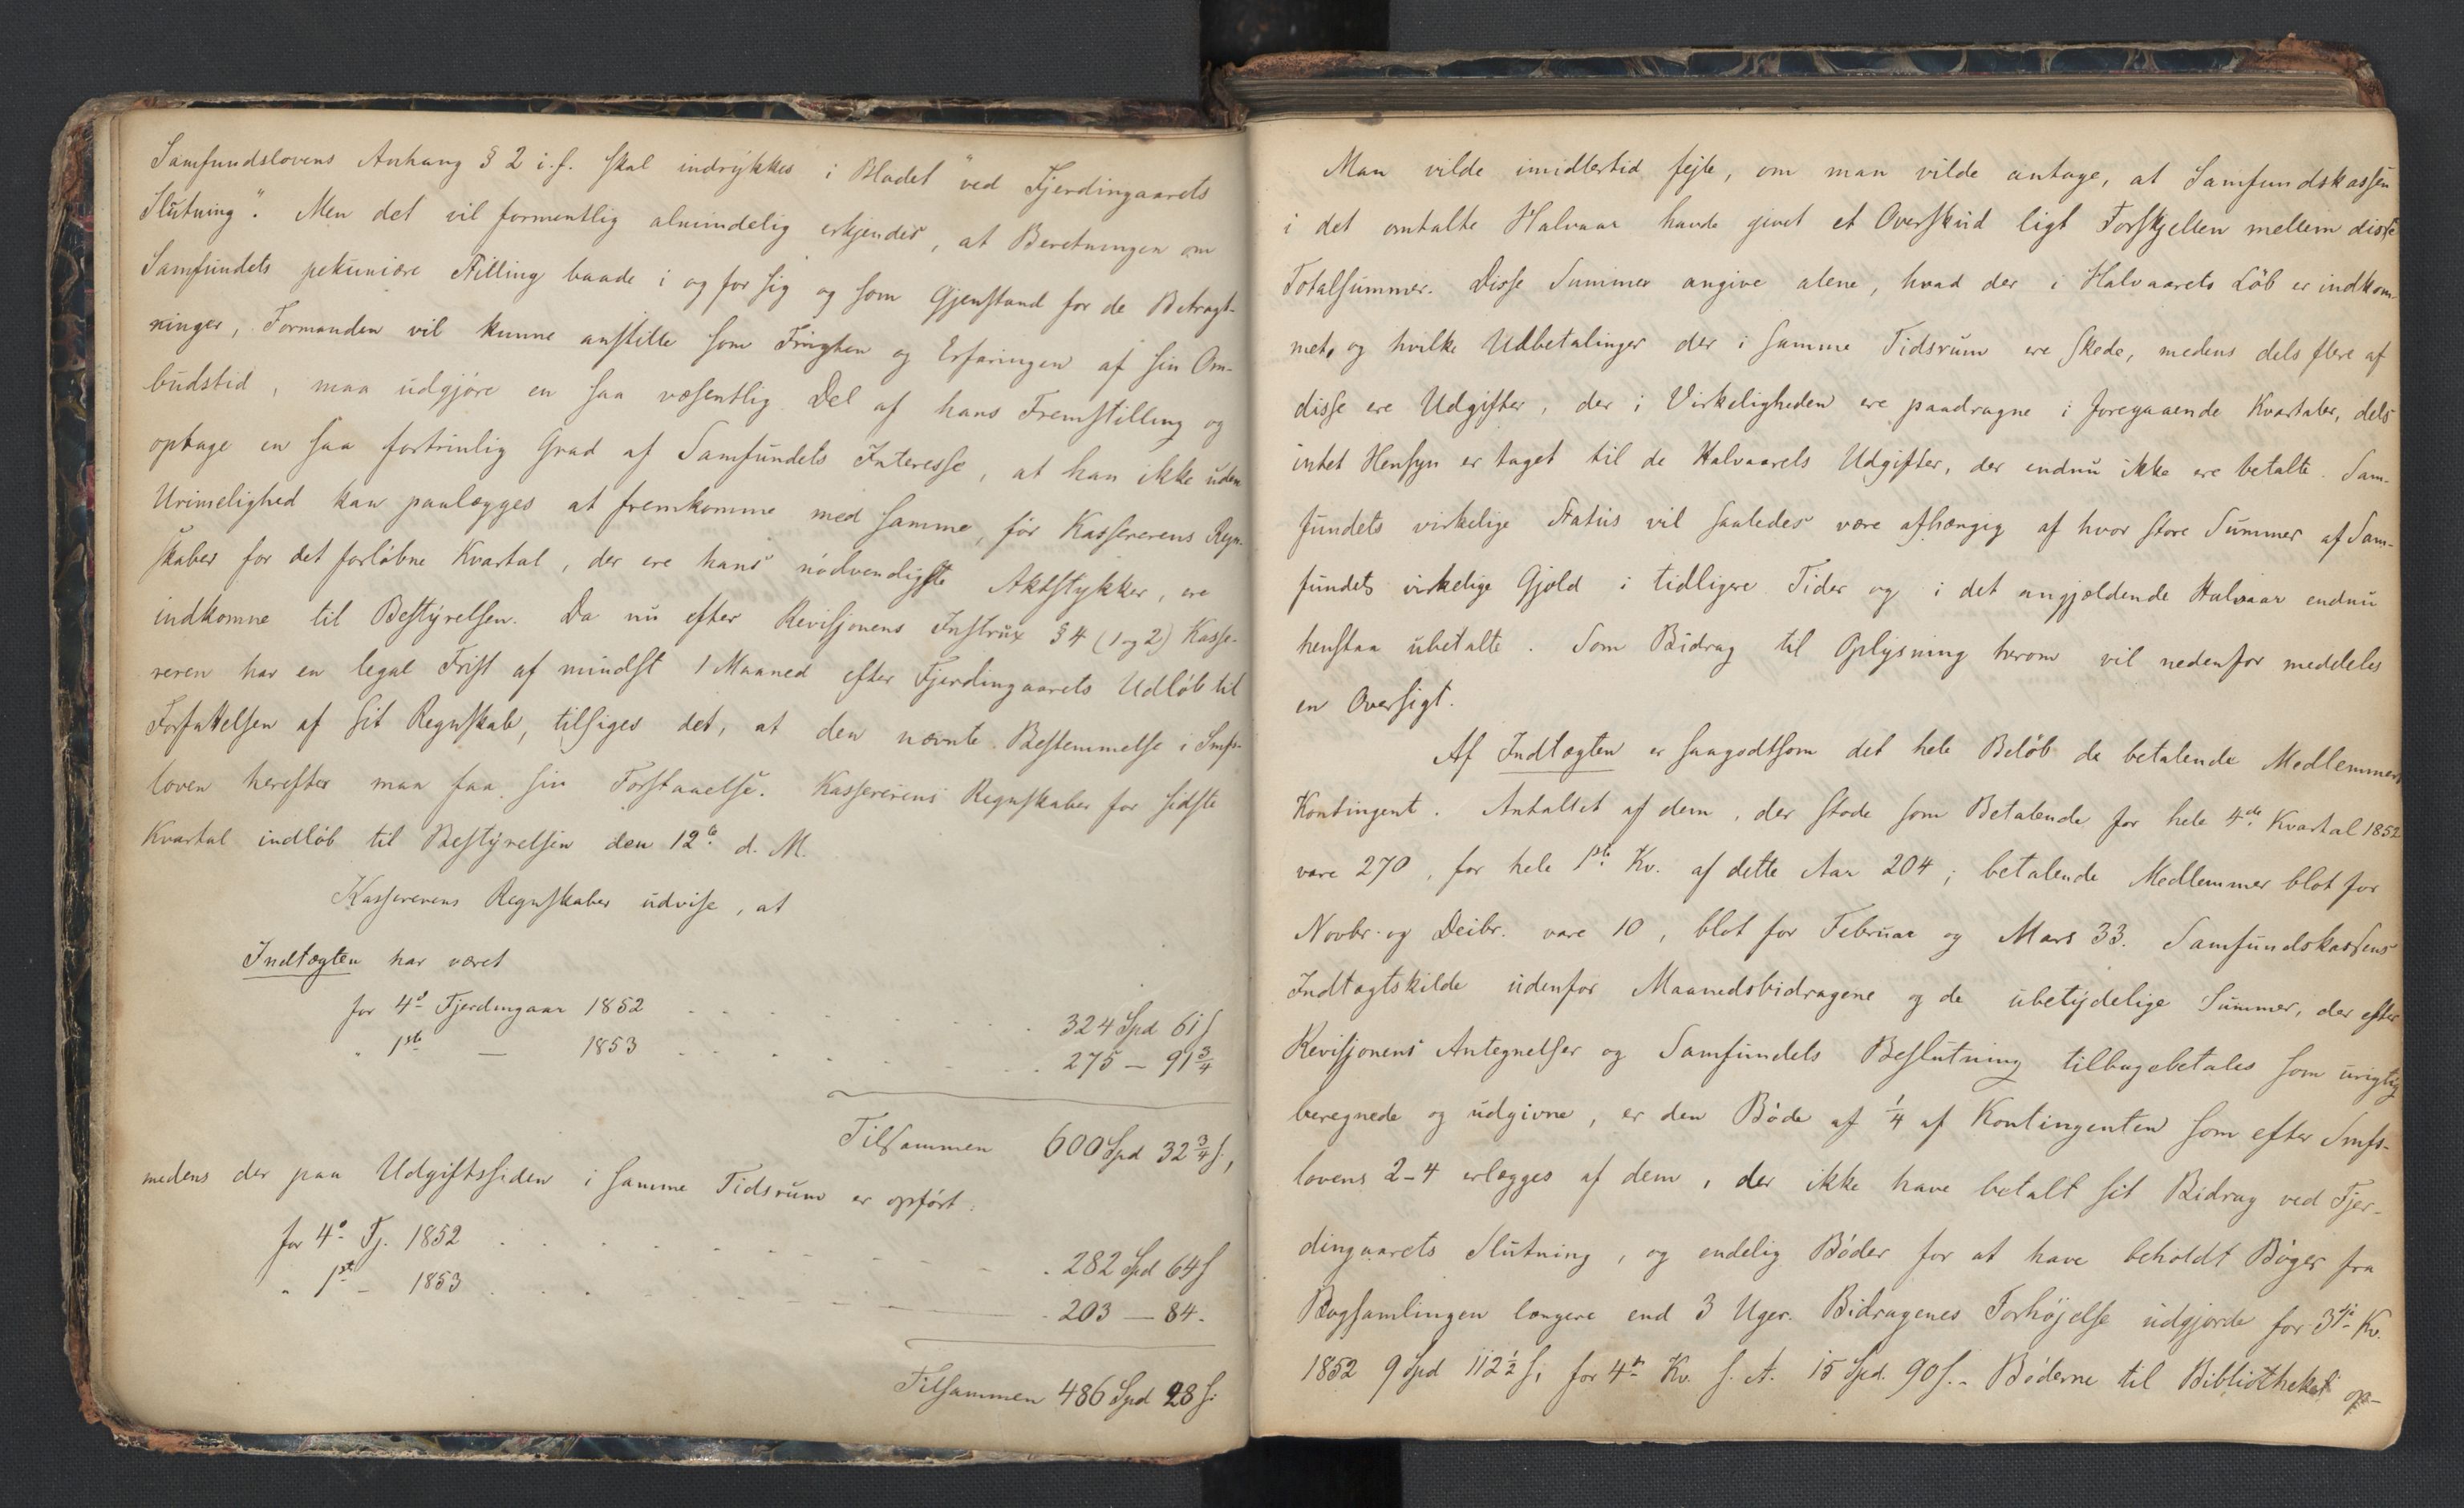 Samfundslovens Anhang § 2 i.f. skal indrykkes i Bladet "ved Fjerdingaarets
Slutning". Men det vil formentlig almindelig erkjendes, at Beretningen om
Samfundets pekuniære Stilling baade i og for sig og som Gjenstand for de Betragt-
ninger, Formanden vil kunne anstille som Frugten og Erfaringen af sin Om-
budstid, maa udgjøre en saa væsentlig Del af hans Fremstilling og
optage en saa fortrinlig Grad af Samfundets Interesse, at han ikke uden
Urimelighed kan paalægges at fremkomme med samme, før Kassererens Regn-
skaber for det forløbne Kvartal, der ere hans nødvendigste Aktstykker, ere
indkomne til Bestyrelsen. Da nu efter Revisjonens Instrux § 4 (1 og 2) Kasse-
reren har en legal Frist af mindst 1 Maaned efter Fjerdingaarets Udløb til
Forfattelsen af sit Regnskab, tilsiges det, at den nævnte Bestemmelse i Smfs-
loven herefter maa faa sin Forstaaelse. Kassererens Regnskaber for sidste
Kvartal indløb til Bestyrelsen den 12te d. M.
Kassererens Regnskaber udvise, at
Indtægten har været
for 4de Fjerdingaar 1852 . . . . . . 324 Spd 61 s
" 1ste — 1853 . . . . . . 275 — 91 3/4
Tilsammen 600 Spd 32 3/4 s,
medens der paa Udgiftssiden i samme Tidsrum er opført:
for 4de Fj. 1852 . . . . . . 282 Spd 64 s
" 1ste — 1853 . . . . . . 203 — 84.
Tilsammen 486 Spd 28 s.
Man vilde imidlertid fejle, om man vilde antage, at Samfundskassen
i det omtalte Halvaar havde givet et Overskud ligt Forskjellen mellem disse
Totalsummer. Disse Summer angive alene, hvad der i Halvaarets Løb er indkom-
met, og hvilke Udbetalinger der i samme Tidsrum ere skede, medens dels flere af
disse ere Udgifter, der i Virkeligheden ere paadragne i foregaaende Kvartaler, dels
intet Hensyn er taget til de Halvaarets Udgifter, der endnu ikke ere betalte. Sam-
fundets virkelige Status vil saaledes være afhængig af hvor store Summer af Sam-
fundets virkelige Gjæld i tidligere Tider og i det angjældende Halvaar endnu
henstaa ubetalte. Som Bidrag til Oplysning herom vil nedenfor meddeles
en Oversigt.
Af Indtægten er saagodtsom det hele Beløb de betalende Medlemmers
Kontingent. Antallet af dem, der stode som Betalende for hele 4de Kvartal 1852
vare 270, for hele 1ste Kv. af dette Aar 204; betalende Medlemmer blot for
Novbr. og Decbr. vare 10, blot for Februar og Mars 33. Samfundskassens
Indtægtskilde udenfor Maanedsbidragene og de ubetydelige Summer, der efter
Revisjonens Antegnelser og Samfundets Beslutning tilbagebetales som urigtig
beregnede og udgivne, er den Bøde af 1/4 af Kontingenten som efter Smfs-
lovens 2-4 erlægges af dem, der ikke have betalt sit Bidrag ved Fjer-
dingaarets Slutning, og endelig Bøder for at have beholdt Bøger fra
Bogsamlingen længere end 3 Uger. Bidragenes Forhøjelse udgjorde for 3die Kv.
1852 9 Spd 112 1/2 s; for 4de Kv. s. A. 15 Spd. 90 s. - Bøderne til Bibliotheket op-